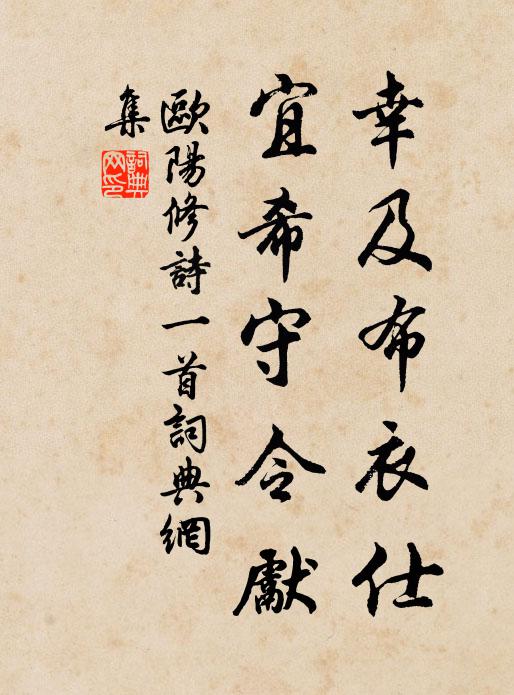 幸及布衣仕
宜希守令獻
歐陽修詩一首詞典網
集
詞典
网印